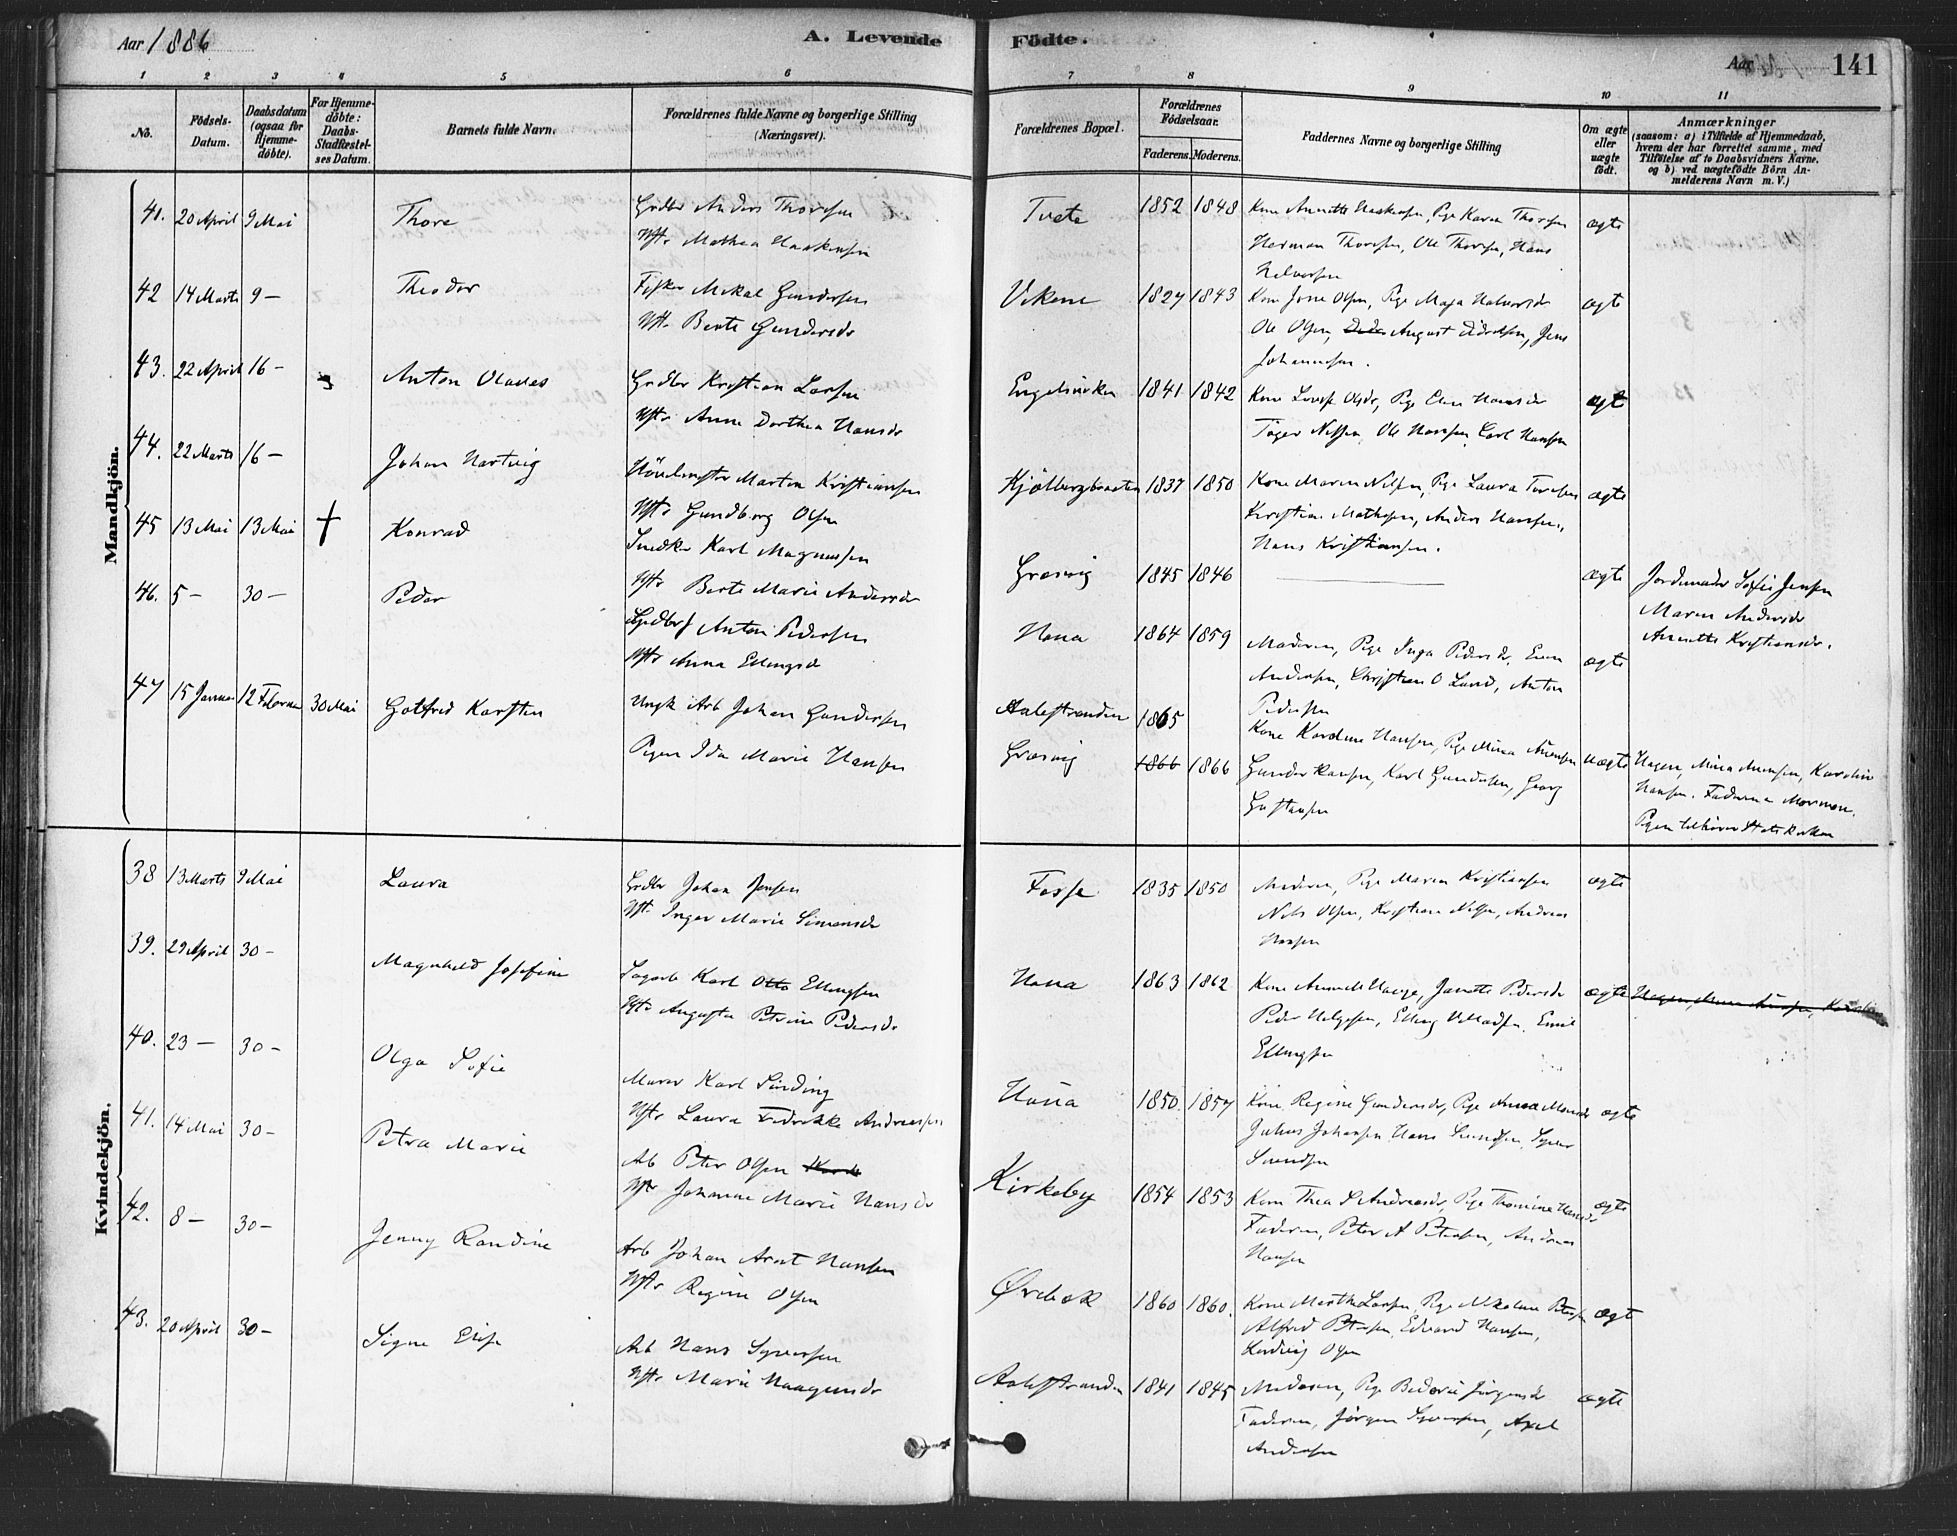 Aar 1886
A. Levende
Födte.
Aar
141
1 2 3 4 5 6 7 8 9 10 11
No.
Födsels-Datum.
Daabsdatum (ogsaa for Hjemme-döbte).
For Hjemme-döbte: Daabs-Stadfæstel-ses Datum.
Barnets fulde Navn.
Forældrenes fulde Navne og borgerlige Stilling (Næringsvei).
Forældrenes Bopæl.
Forældrenes Födselsaar.
Faderens. Moderens.
Faddernes Navne og borgerlige Stilling
Om ægte eller uægte födt.
Anmærkninger
(saasom: a) i Tilfælde af Hjemmedaab, hvem der har forrettet samme, med Tilföielse af to Daabsvidners Navne, og b) ved uægtefödte Börn An-melderens Navn m. V.)
Mandkjön.
41. 20 April 9 Mai Thore
Grdbr Anders Thoresen
Hstr Mathea Haakensen
Tvete 1852 1848
Kone Annette Haakensen, Pige Karen Thoresen
Herman Thoresen, Ole Thoresen, Hans
Halvorsen
ægte
42 14 Marts 9 — Theodor
Fisker Mikal Gundersen
Hstr Berte Gundersdr
Vikene 1827 1843
Kone Jone Olsen, Pige Maja Halvorsdr
Ole Olsen, August , Jens
Johannesen.
ægte
43. 22 April 16 — Anton Olaves
Grdbr Kristian Larsen
Hstr Anne Dorthea Hansdr
Engelsviken 1841 1842
Kone Lovise Olsdr, Pige Elen Hansdr
Tøger Nilsen, Ole Hansen, Carl Hansen
ægte
44. 22 Marts 16 — Johan Hartvig
Marten Kristiansen
Hstr Gundborg Olsen
Kjölbergbraaten 1837 1850
Kone Maren Nilsen, Pige Laura
Kristian Mathesen, Anders Hansen,
Hans Kristiansen.
ægte
45 13 Mai 13 Mai † Konrad
Snedker Karl Magnussen
Hstr Berte Marie Andersdr
Græsvig 1845 1846
ægte
Jordemoder Sofie Jensen
Maren Andersdr
Annette Kristiansdr.
46. 5 — 30 — Peder
Anton Pedersen
Hstr Anna Ellingsdr
Hona 1864 1859
Moderen, Pige Inga Pedersdr, Even
Andersen, Christian O Lund, Anton
Pedersen
ægte
47 15 Januar 12 Februar 30 Mai Gotfred Karsten
Ungk Arb Johan Gundersen
Pigen Ida Marie Hansen
Aalestranden 1865
Græsvig 1866 1866
Kone Karoline Hansen, Pige Mina Arnesen
Gunder Hansen, Karl Gundersen, Georg
Gustavsen
uægte
Hagen, Mina Arnesen, Karoline
Hansen. Faderen er Mormon.
Pigen tilhører Statskirken
Kvindekjön.
38 13 Marts 9 Mai Laura
Grdbr Johan Jensen
Hstr Inger Marie Simensdr
Fosse 1835 1850
Moderen, Pige Maren Kristiansen
Nils Olsen, Kristian Nilsen, Andreas
Hansen
ægte
39. 29 April 30 — Magnhild Josefine
Karl Otto Ellingsen
Hstr Augusta Petrine Pedersdr
Hona 1863 1862
Kone Hauge, Janette Pedersdr
Peder Helgesen, Elling , Emil
Ellingsen
ægte
40. 23 — 30 — Olga Sofie
Murer Karl Sinding
Hstr Laura Fredrikke Andreassen
Hona 1850. 1857
Kone Regine Gundersdr, Pige Anna Hansdr
Julius Johansen, Hans Svendsen, Syver
Svendsen
ægte
41. 14 Mai 30 — Petra Marie
Arb Peter Olsen
Hstr Johanne Marie Hansdr
Kirkeby 1854 1853
Kone Thea S Andreasdr, Pige Thomine Hansdr
Faderen, Peter A Petersen, Andreas
Hansen
ægte
42. 8 — 30 — Jenny Randine
Arb Johan Arnt Hansen
Hstr Regine Olsen
Ørebæk 1860 1860.
Kone Marthe Larsen, Pige Nikoline Petersen
Alfred Petersen, Edvard Hansen,
Ludvig Olsen
ægte
43. 20 April 30 — Signe Elise
Arb Hans Syversen
Hstr Marie Haagensdr
Aalestranden 1841 1845
Moderen, Pige Jørgensdr
Faderen, Jørgen Syversen, Axel
Andersen
ægte